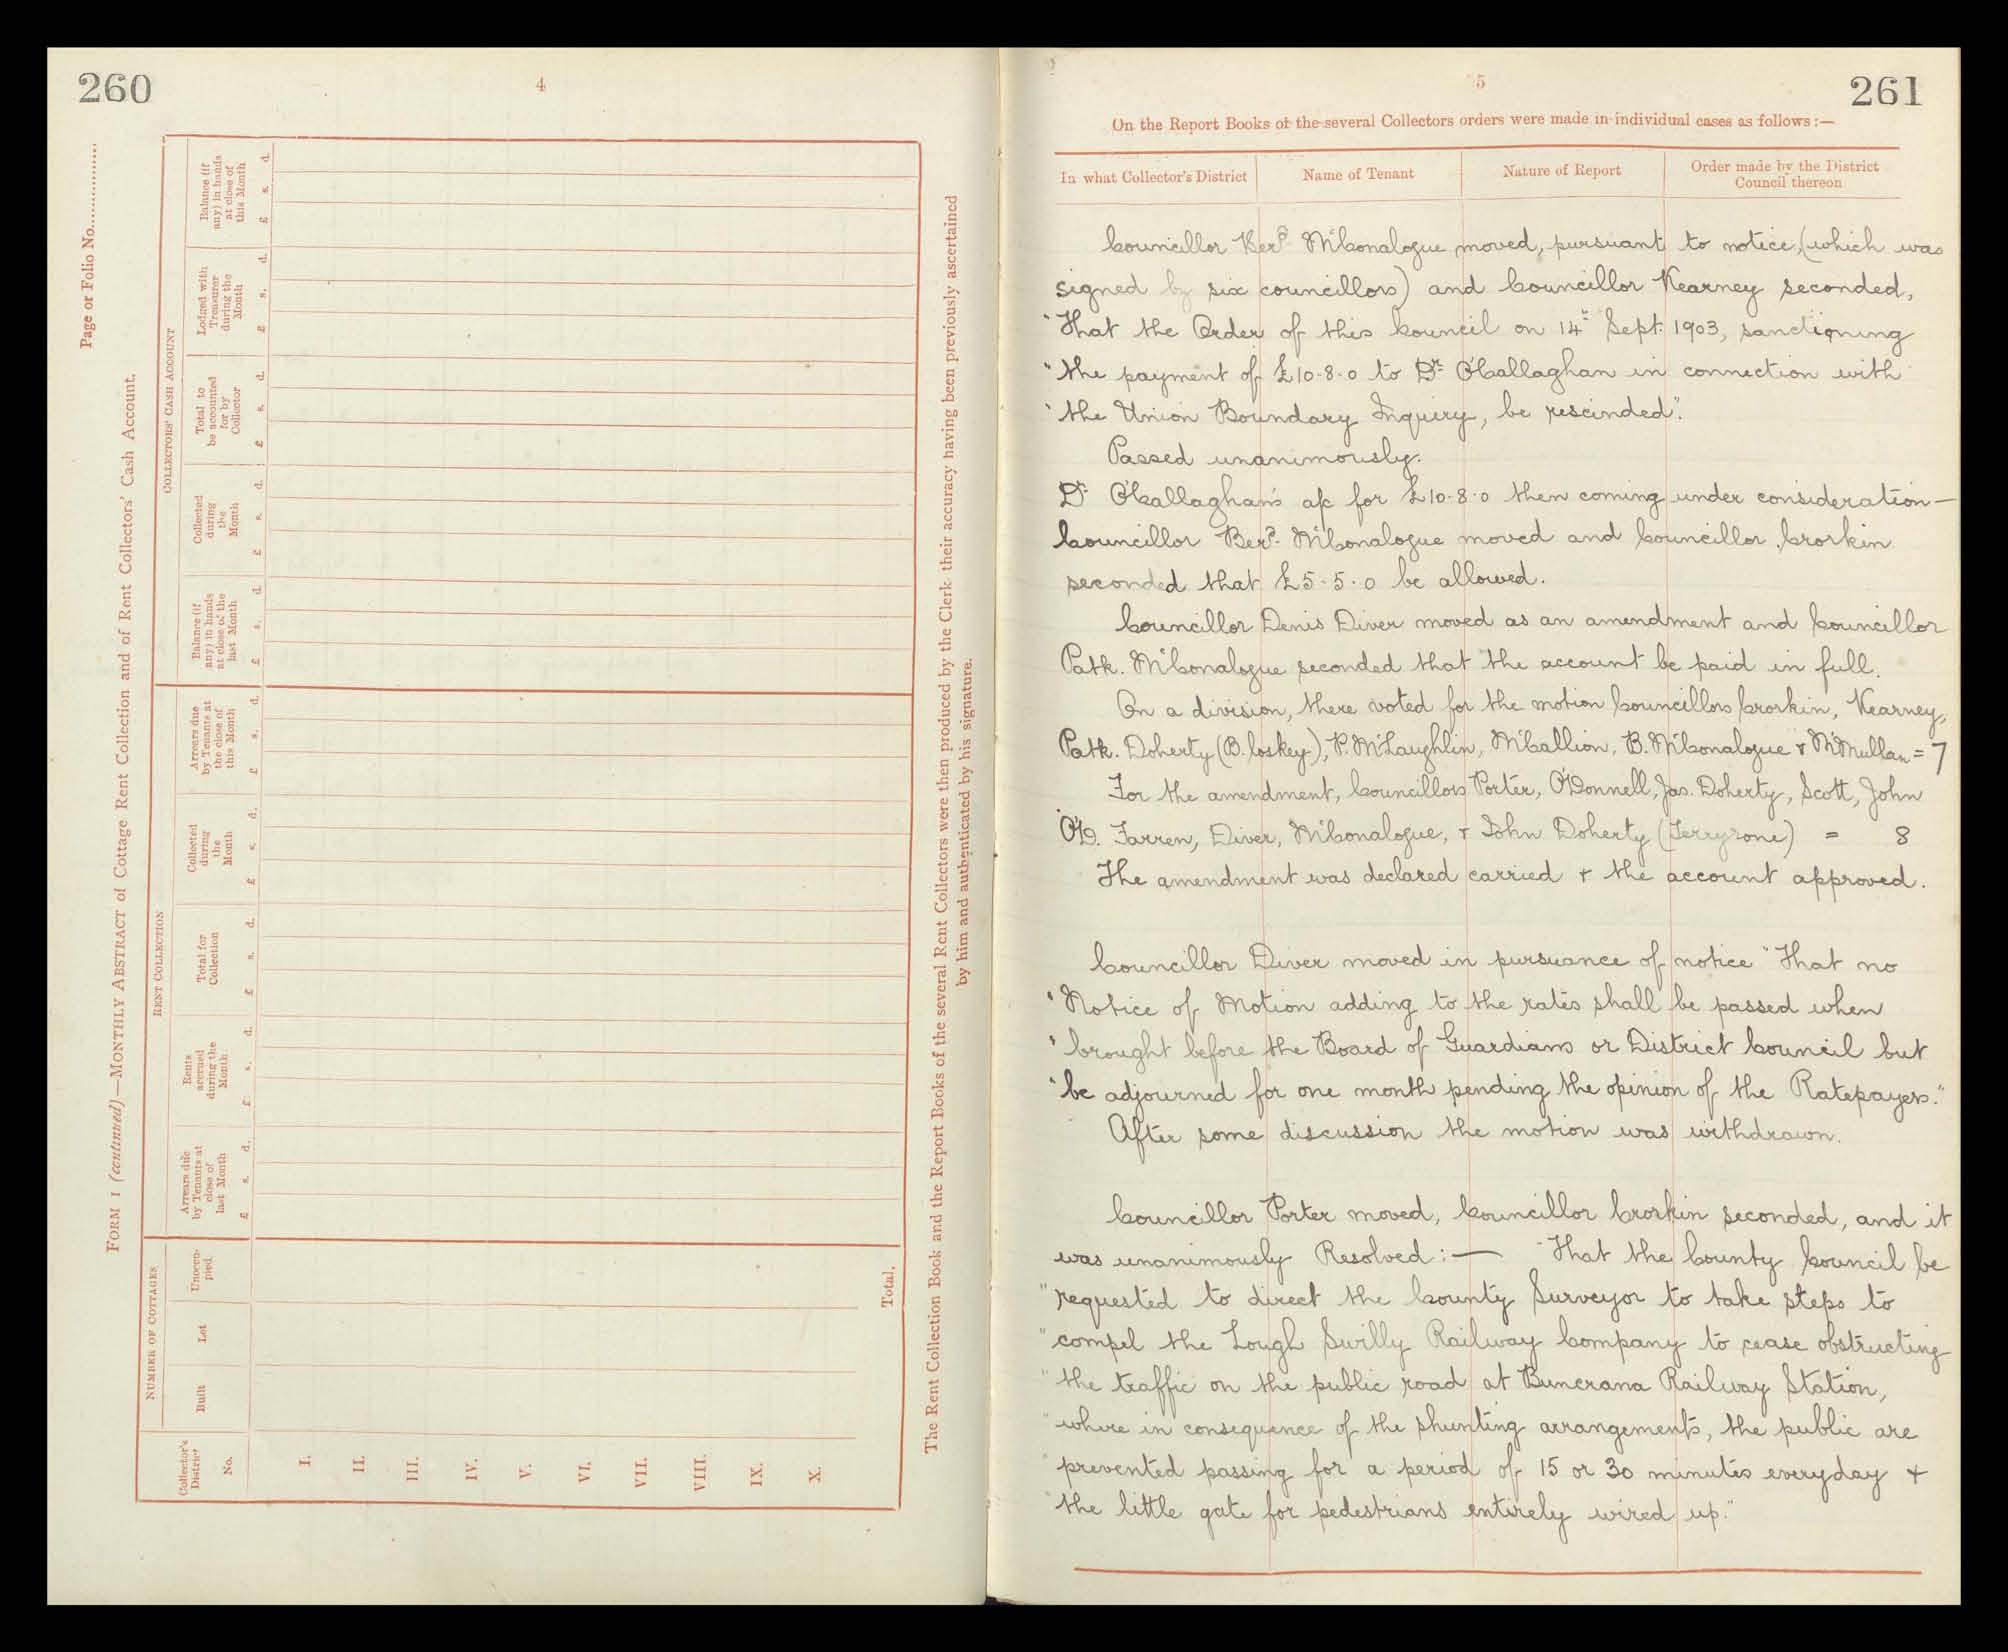 260
4
Page or Folio No.................
FORM 1 (continued)—MONTHLY ABSTRACT of Cottage Rent Collection and of Rent Collectors' Cash Account.
NUMBER OF COTTAGES
RENT COLLECTION
COLLECTORS' CASH ACCOUNT
Collector's
District
No.
Built
Let
Unoccu-
pied
Arrears due
by Tenants at
close of
last Month
Rents
accrued
during the
Month
Total for
Collection
Collected
during
the
Month
Arrears due
by Tenants at
the close of
this Month
Balance (if
any) in hands
at close of the
last Month
Collected
during
the
Month
Total to
be accounted
for by
Collector
Lodged with
Treasurer
during the
Month
Balance (if
any) in hands
at close of
this Month
£ s. d. £ s. d. £ s. d. £ s. d. £ s. d. £ s. d. £ s. d. £ s. d. £ s. d. £ s. d.
I.
II.
III.
IV.
V.
VI.
VII.
VIII.
IX.
X.
Total,
The Rent Collection Book and the Report Books of the several Rent Collectors were then produced by the Clerk their accuracy having been previously ascertained
by him and authenticated by his signature.
5
261
On the Report Books of the several Collectors orders were made in individual cases as follows:—
In what Collector's District
Name of Tenant
Nature of Report
Order made by the District
Council thereon
Councillor Berd McConalogue moved, pursuant to notice, (which was
signed by six councillors) and Councillor Kearney seconded,
"That the Order of this Council on 14th Sept. 1903, sanctioning
"the payment of £10-8-0 to Dr. O'Callaghan in connection with
"the Union Boundary Inquiry, be rescinded".
Passed unanimously.
Dr O'Callaghan's a/c for £10-8-0 then coming under consideration—
Councillor Berd. McConalogue moved and Councillor Crorkin
seconded that £5-5-0 be allowed.
Councillor Denis Diver moved as an amendment and Councillor
Patk. McConalogue seconded that the account be paid in full.
On a division, there voted for the motion Councillors Crorkin, Kearney,
Patk. Doherty (B. Coskey), P. McLaughlin, McCallion, B. McConalogue & McMullan = 7
For the amendment, Councillors Porter, O'Donnell, Jas. Doherty, Scott, John
O'D. Farren, Diver, McConalogue, & John Doherty = 8
The amendment was declared carried & the account approved.
Councillor Diver moved in pursuance of notice "That no
"Notice of Motion adding to the rates shall be passed when
"brought before the Board of Guardians or District Council but
"be adjourned for one month pending the opinion of the Ratepayers."
After some discussion the motion was withdrawn.
Councillor Porter moved, Councillor Crorkin seconded, and it
was unanimously Resolved:— "That the County Council be
"requested to direct the County Surveyor to take steps to
"compel the Lough Swilly Railway Company to cease obstructing
"the traffic on the public road at Buncrana Railway Station,
"where in consequence of the shunting arrangements, the public are
"prevented passing for a period of 15 or 30 minutes everyday &
"the little gate for pedestrians entirely wired up."